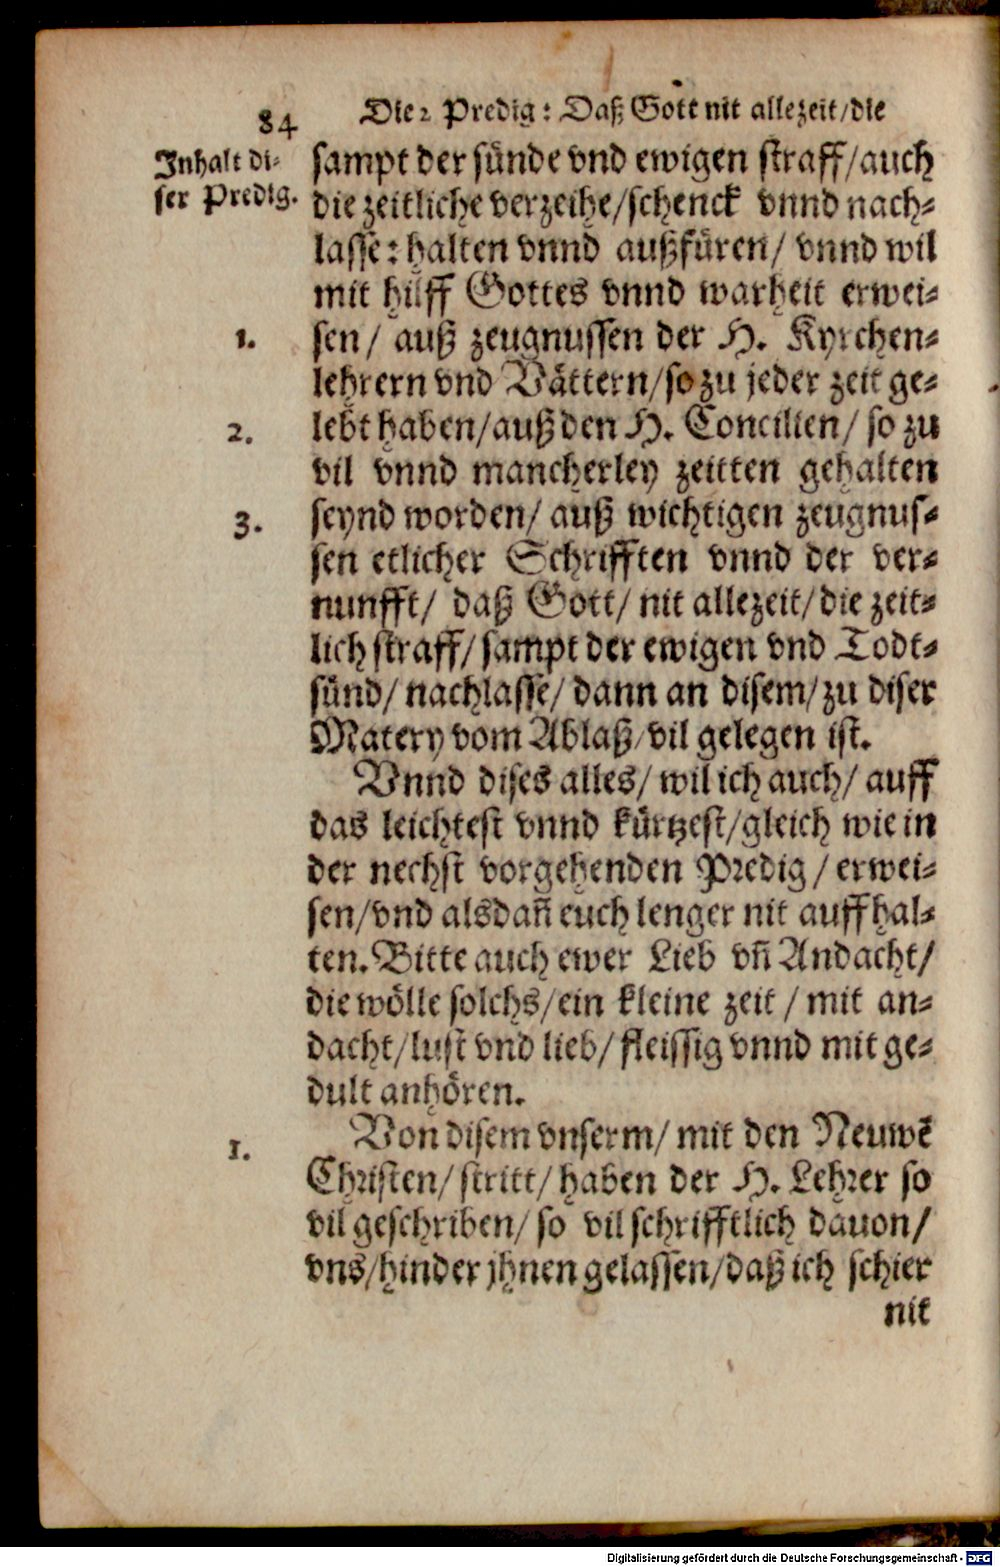 84 Die 2 Predig: Daß Gott nit allezeit/die
Inhalt di-
ser Predig.
sampt der sünde vnd ewigen straff/auch
die zeitliche verzeihe/schenck vnnd nach-
lasse: halten vnnd außfüren/ vnnd wil
mit hilff Gottes vnnd warheit erwei-
1. sen/ auß zeugnussen der H. Kyrchen-
lehrern vnd Vättern/so zu jeder zeit ge-
2. lebt haben/auß den H. Concilien/ so zu
vil vnnd mancherley zeitten gehalten
3. seynd worden/ auß wichtigen zeugnus-
sen etlicher Schrifften vnnd der ver-
nunfft/ daß Gott/ nit allezeit/die zeit-
lich straff/sampt der ewigen vnd Todt-
sünd/ nachlasse/ dann an disem/zu diser
Matery vom Ablaß/vil gelegen ist.
Vnnd dises alles/ wil ich auch/ auff
das leichtest vnnd kürtzest/gleich wie in
der nechst vorgehenden Predig/ erwei-
sen/vnd alsdañ euch lenger nit auffhal-
ten. Bitte auch ewer Lieb vñ Andacht/
die wölle solchs/ein kleine zeit/ mit an-
dacht/lust vnd lieb/ fleissig vnnd mit ge-
dult anhören.
1. Von disem vnserm/ mit den Neuwẽ
Christen/ stritt/ haben der H. Lehrer so
vil geschriben/ so vil schrifftlich dauon/
vns/hinder jhnen gelassen/daß ich schier
nit
Digitalisierung gefördert durch die Deutsche Forschungsgemeinschaft - DFG